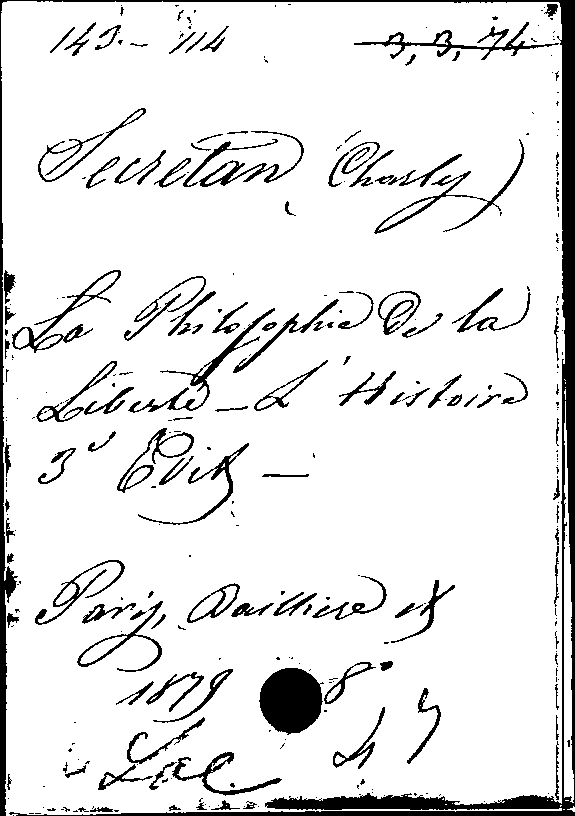 143.- 114 3, 3, 74
Secretan (Charles)
La Philosophie De la
Liberté – L'Histoire
3e Édit –
Paris, Baillière et
1879 8°
Lac 47